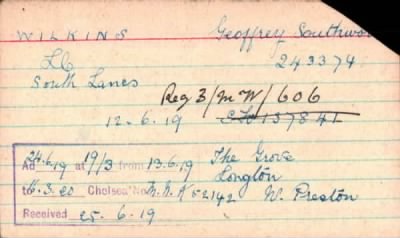 WILKINS Geoffrey Southwor
L/C 243374
South Lancs
Reg 3/MW/606
12.6.19 137841
Ad 24.6.19 at 19/3 from 13.6.19 The Grove
Longton
to 16.3.20 Chelsea No 52142 W. Preston
Received 25.6.19